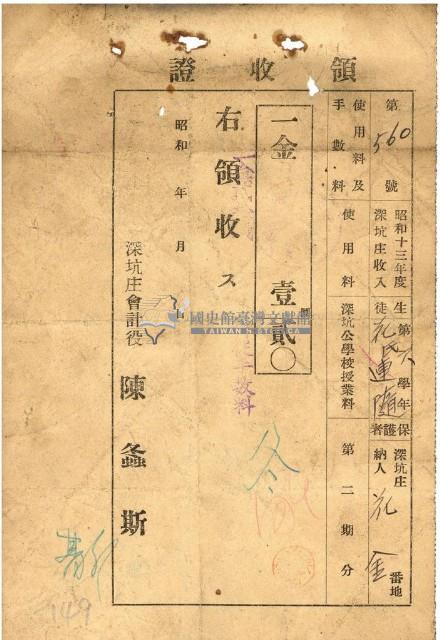 領收證
第560號
使用料及
手數料
昭和十三年度
深坑庄收入
使用料
第六學年
生徒
連隨
深坑公學校授業料
保護者
深坑庄
番地
納人
金
第二期分
一金
壹圓貳〇
右領收ス
昭和 年 月 日
深坑庄會計役
陳螽斯
國史館臺灣文獻館
TAIWAN HISTORICA
冬
149